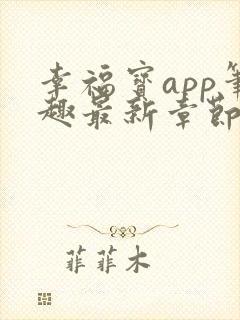 幸福宝app筆
趣最新章節
菲菲木